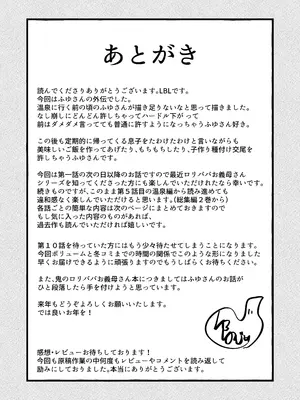 あとがき
読んでくださりありがとうございます。LBLです。
今回はふゆさんの外伝でした。
温泉に行く前の頃のふゆさんが描き足りないなと思って描きました。
なし崩しにどんどん許しちゃってハードル下がって
前はダメダメ言ってても普通に許すようになっちゃうふゆさん好き。
この後も定期的に帰ってくる息子をたわけたわけと言いながらも
美味しいご飯を作ってあげたり、もちもちしたり、子作り種付け交尾を
許しちゃうふゆさんです。
今回は第一話の次の日以降のお話ですので最近ロリババお義母さん
シリーズを知ってくださった方にも楽しんでいただけれたなら幸いです。
続きものですが、このまま第5話目の温泉編から読み進めても
違和感なく楽しんでいただけると思います。(総集編2巻から)
各話ごとの簡単な内容は次のページにまとめておきますので
もし気に入った内容のものがあれば、
過去作も読んでいただけますと嬉しいです。
第10話を待っていた方にはもう少々待たせてしまうことになります。
今回ボリュームと冬コミまでの時間の関係でこのような形になりました
早くお届けできるように頑張りますのでもうしばらくお待ちください。
また、鬼のロリババお義母さん本につきましてはふゆさんのお話が
ひと段落したら手を付けようと思っています。
来年もどうぞよろしくお願いいたします。
では良いお年を!
感想・レビューお待ちしております!
今回も原稿作業の中何度もレビューやコメントを読み返して
励みにしておりました。本当にありがとうございます。